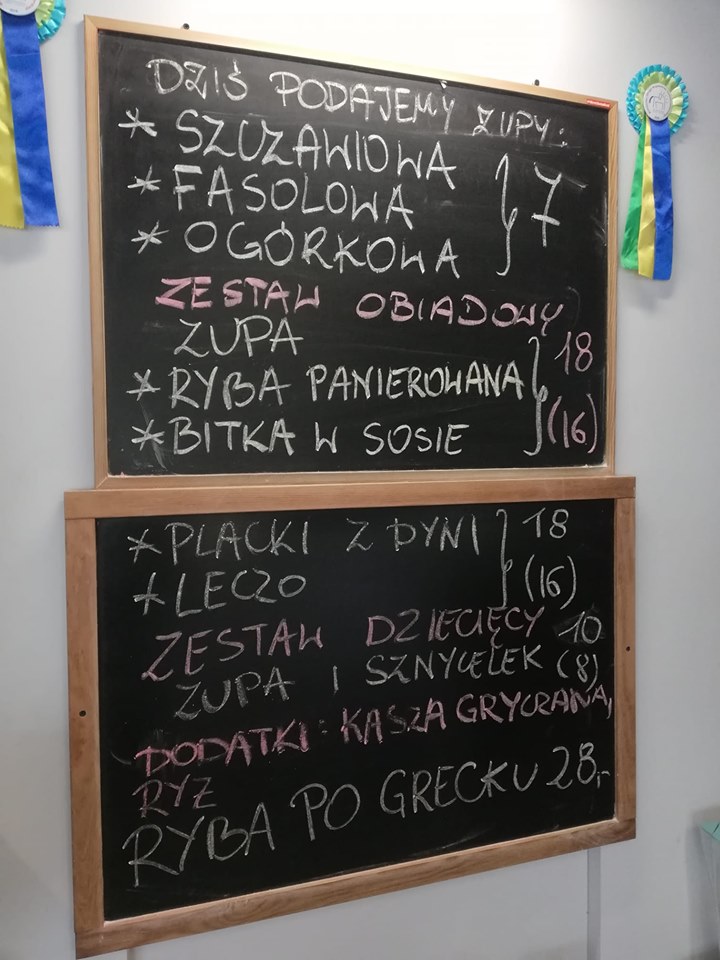 DZIŚ PODAJEMY ZUPY:
* SZCZAWIOWA
* FASOLOWA } 7
* OGÓRKOWA
ZESTAW OBIADOWY
ZUPA
* RYBA PANIEROWANA } 18
* BITKA W SOSIE (16)
* PLACKI Z DYNI } 18
* LECZO (16)
ZESTAW DZIECIĘCY 10
ZUPA i SZNYCELEK (8)
DODATKI: KASZA GRYCZANA,
RYŻ
RYBA PO GRECKU 28,-